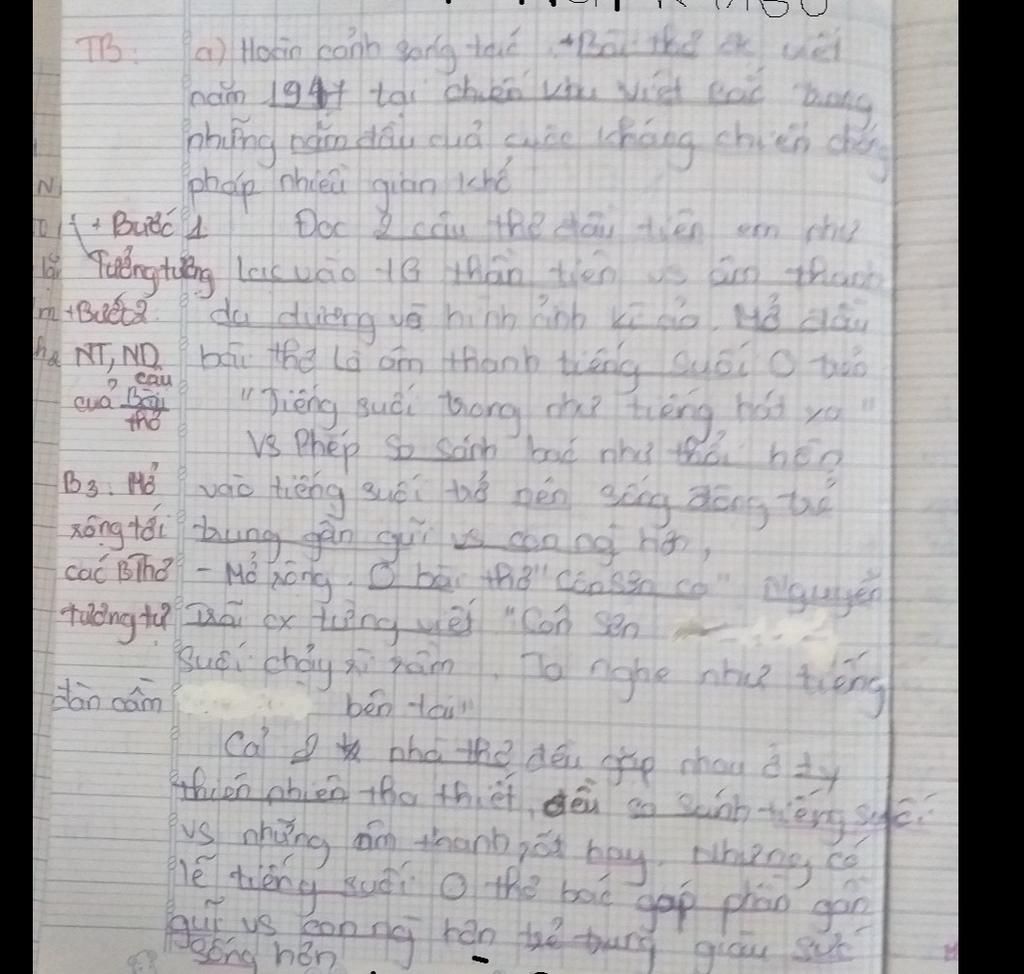 TB: a) Hoàn cảnh sáng tác. + Bài thơ đk viết
năm 1947 tại chiến khu Việt Bắc trong
những năm đầu của cuộc kháng chiến chống
pháp nhiều gian khổ
+ Bước 1 Đọc 2 câu thơ đầu tiên em như
Tưởng tượng lạc vào TG thần tiên vs âm thanh
+ Bước 2 du dương về hình ảnh kì ảo. Mở đầu
NT, ND bài thơ là âm thanh tiếng suối
câu
của Bài "Tiếng suối trong như tiếng hát xa"
thơ
Vs Phép so sánh bác như thổi hồn
B3. Mở vào tiếng suối trở nên sống động trẻ
rộng tới trung gần gũi vs con ng hơn,
các BThơ - Mở rộng. Ở bài thơ "Côn Sơn ca" Nguyễn
tương tự Trãi cx từng viết "Côn Sơn
Suối chảy rì rầm. Ta nghe như tiếng
đàn cầm bên tai"
Cả 2 nhà thơ đều gặp nhau ở ty
thiên nhiên tha thiết, đều so sánh tiếng suối
vs những âm thanh rất hay. Nhưng có
lẽ tiếng suối thơ bác góp phần gần
gũi vs con ng hơn trẻ trung giàu sức
sống hơn